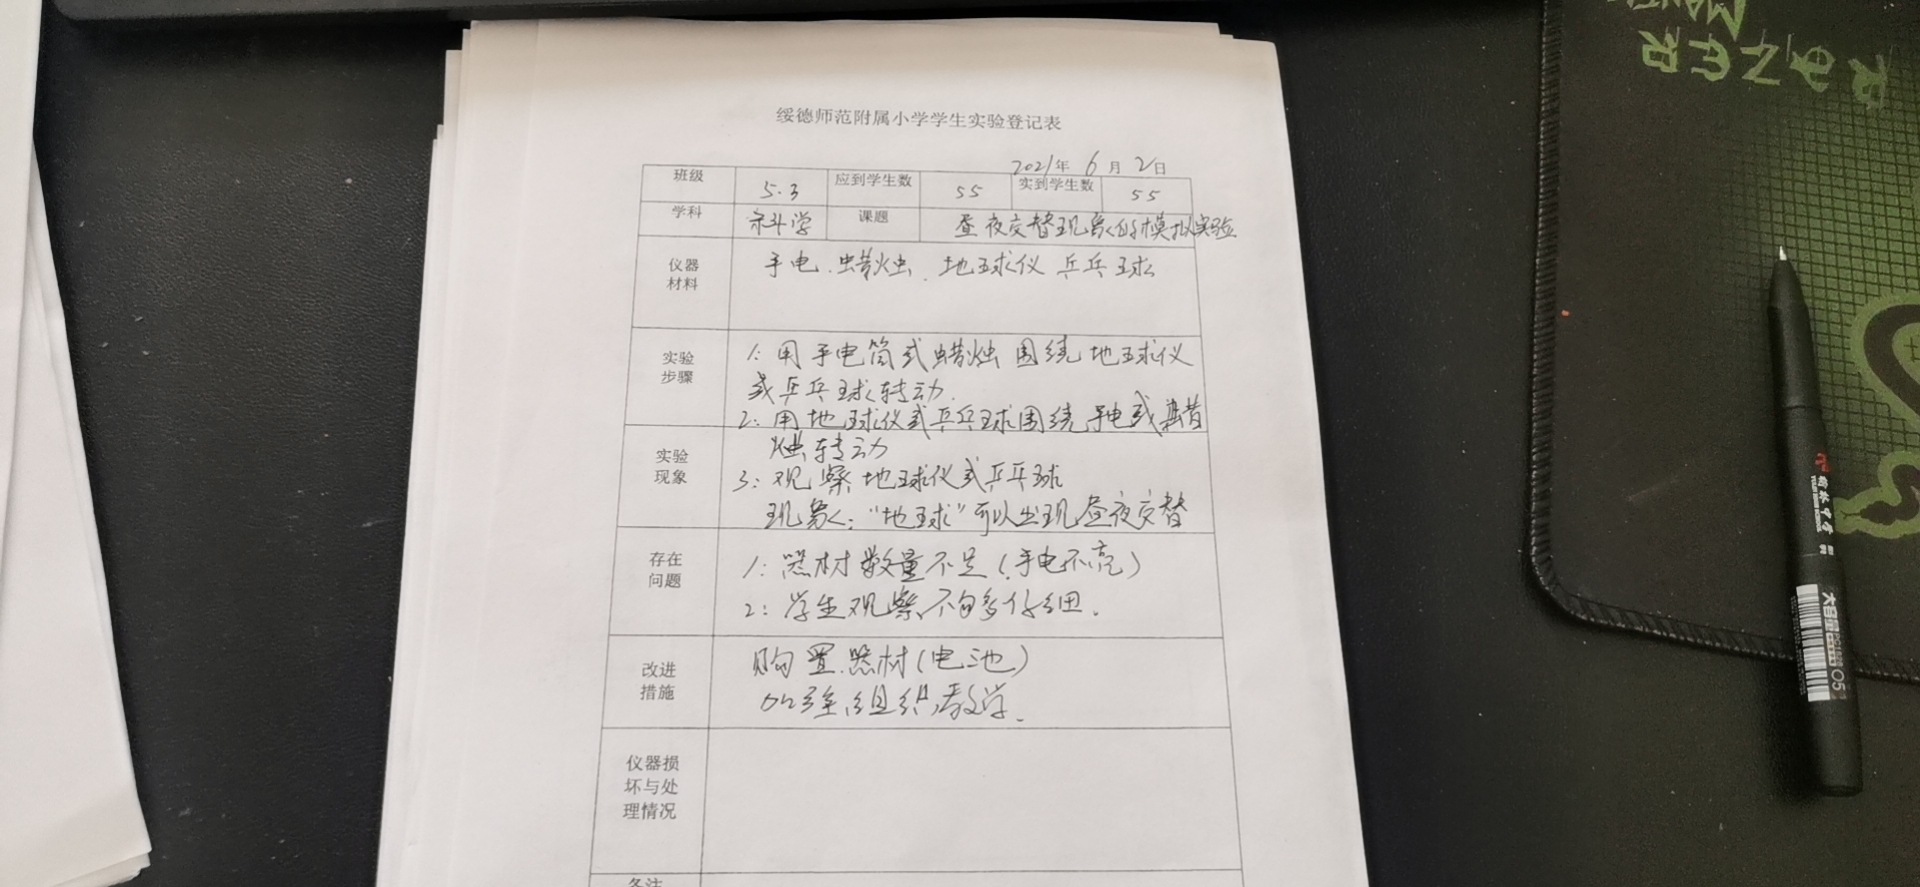 绥德师范附属小学学生实验登记表
2021年 6月 2日
班级 5.3 应到学生数 55 实到学生数 55
学科 科学 课题 昼夜交替现象的模拟实验
仪器材料 手电.蜡烛.地球仪 乒乓球
实验步骤 1: 用手电筒或蜡烛围绕地球仪
或乒乓球转动.
2: 用地球仪或乒乓球围绕手电或蜡
烛转动
实验现象 3: 观察地球仪或乒乓球
现象: "地球"可以出现昼夜交替
存在问题 1: 器材数量不足(手电不亮)
2: 学生观察不够仔细.
改进措施 购置器材(电池)
加强组织教学.
仪器损坏与处理情况
备注
大容量
05